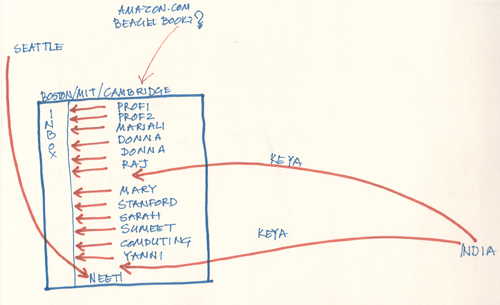 AMAZON.COM
BEAGEL BOOKS?
SEATTLE
BOSTON/MIT/CAMBRIDGE
INBOX
PROF1
PROF2
MARIALI
DONNA
DONNA
RAJ
KEYA
MARY
STANFORD
SARAH
SUMEET
KEYA
COMPUTING
YANNI
INDIA
NEETI